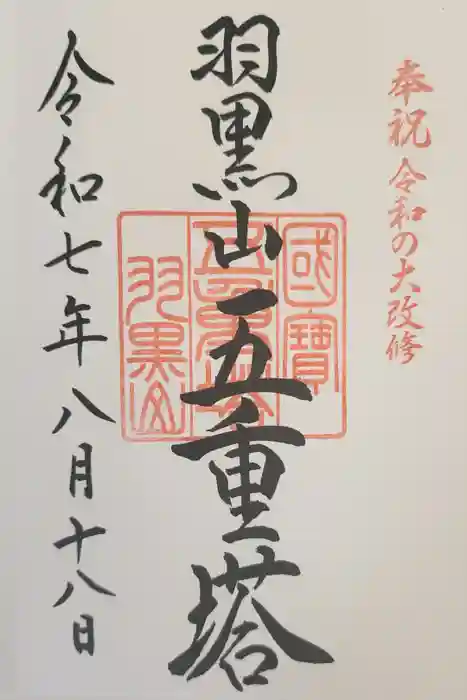 奉祝 令和の大改修
羽黒山五重塔
國寶
五重塔
羽黒山
令和七年八月十八日